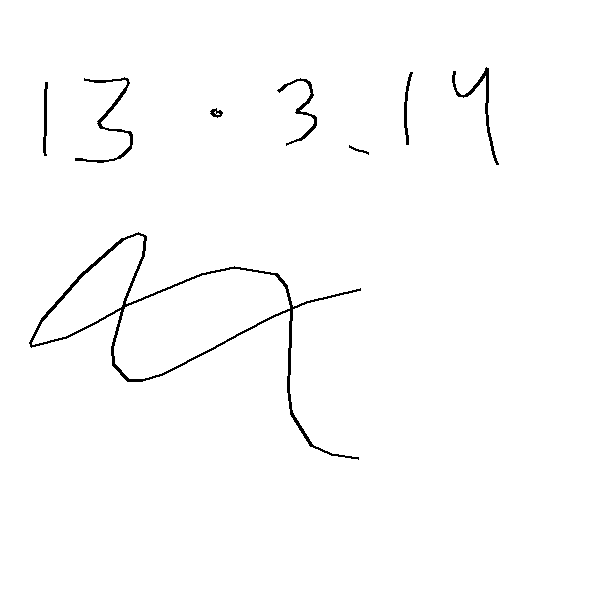 13 · 3.14